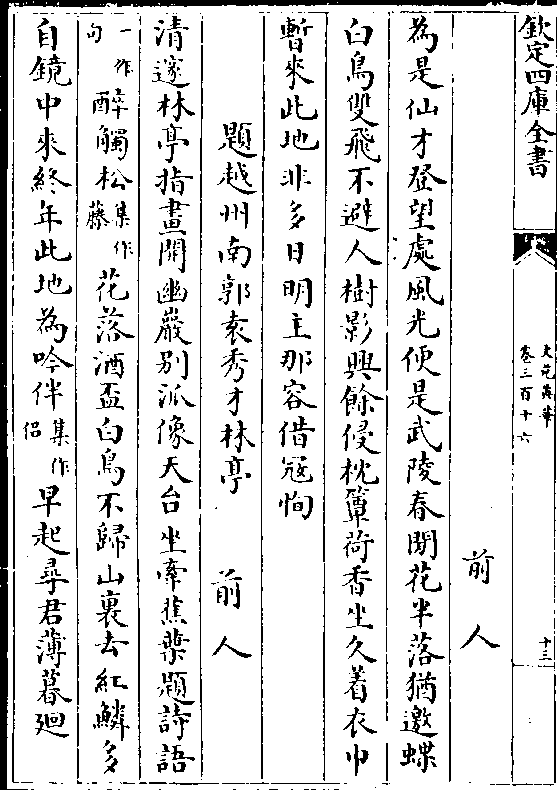 欽定四庫全書
文苑英華
卷三百十六
十三
前人
為是仙才登望處風光便是武陵春閒花半落猶邀蝶
白鳥雙飛不避人樹影興餘侵枕簟荷香坐久着衣巾
暫來此地非多日明主那容借冦恂
題越州南郭袁秀才林亭
前人
清邃林亭指畫開幽巖别派像天台坐牽蕉葉題詩語
一作句醉觸松集作藤花落酒盃白鳥不歸山裏去紅鱗多
自鏡中來終年此地為吟伴集作侣早起尋君薄暮廻